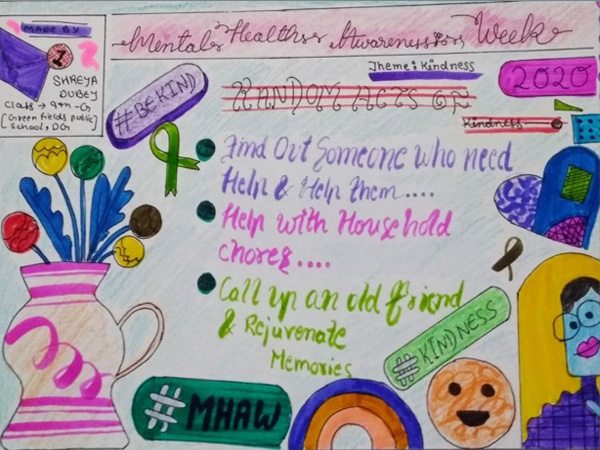 MADE BY
SHREYA
DUBEY
Class → 9th - G
[Green fields public
School, DG]
Mental Health Awareness Week
Theme: Kindness
2020
#BE KIND
RANDOM ACTS OF
Kindness
Find Out Someone who need
Help & Help them....
Help with Household
chores....
Call up an old friend
& Rejuvenate
Memories
#KINDNESS
#MHAW